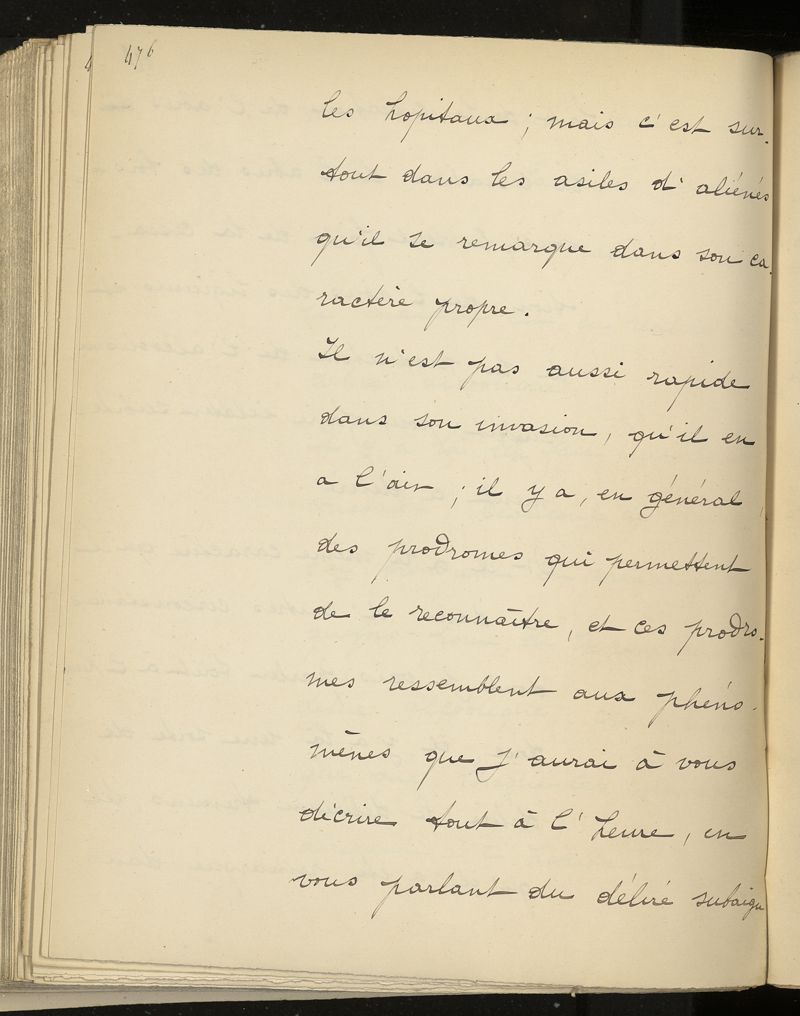 476
les hopitaux ; mais c'est sur-
tout dans les asiles d'aliénés
qu'il se remarque dans son ca-
ractère propre.
Il n'est pas aussi rapide
dans son invasion, qu'il en
a l'air ; il y a, en général,
des prodromes qui permettent
de le reconnaître, et ces prodro-
mes ressemblent aux phéno-
mènes que j'aurai à vous
décrire tout à l'heure, en
vous parlant du délire subaigu